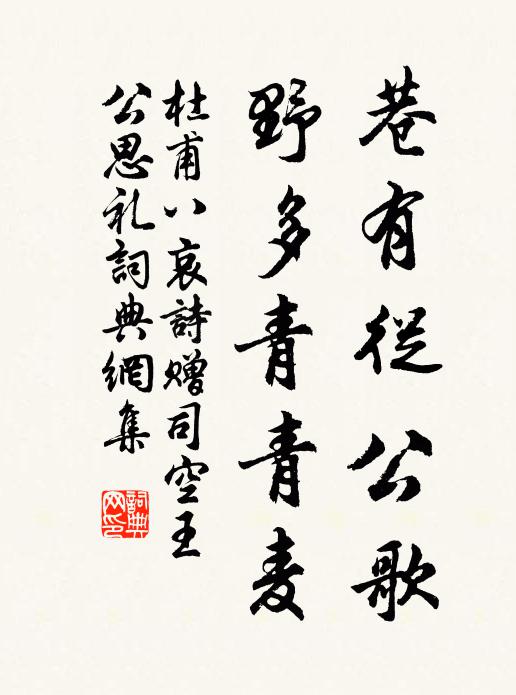 巷有從公歌
野多青青麦
杜甫八哀詩赠司空王
公思礼詞典網集
詞典
网印